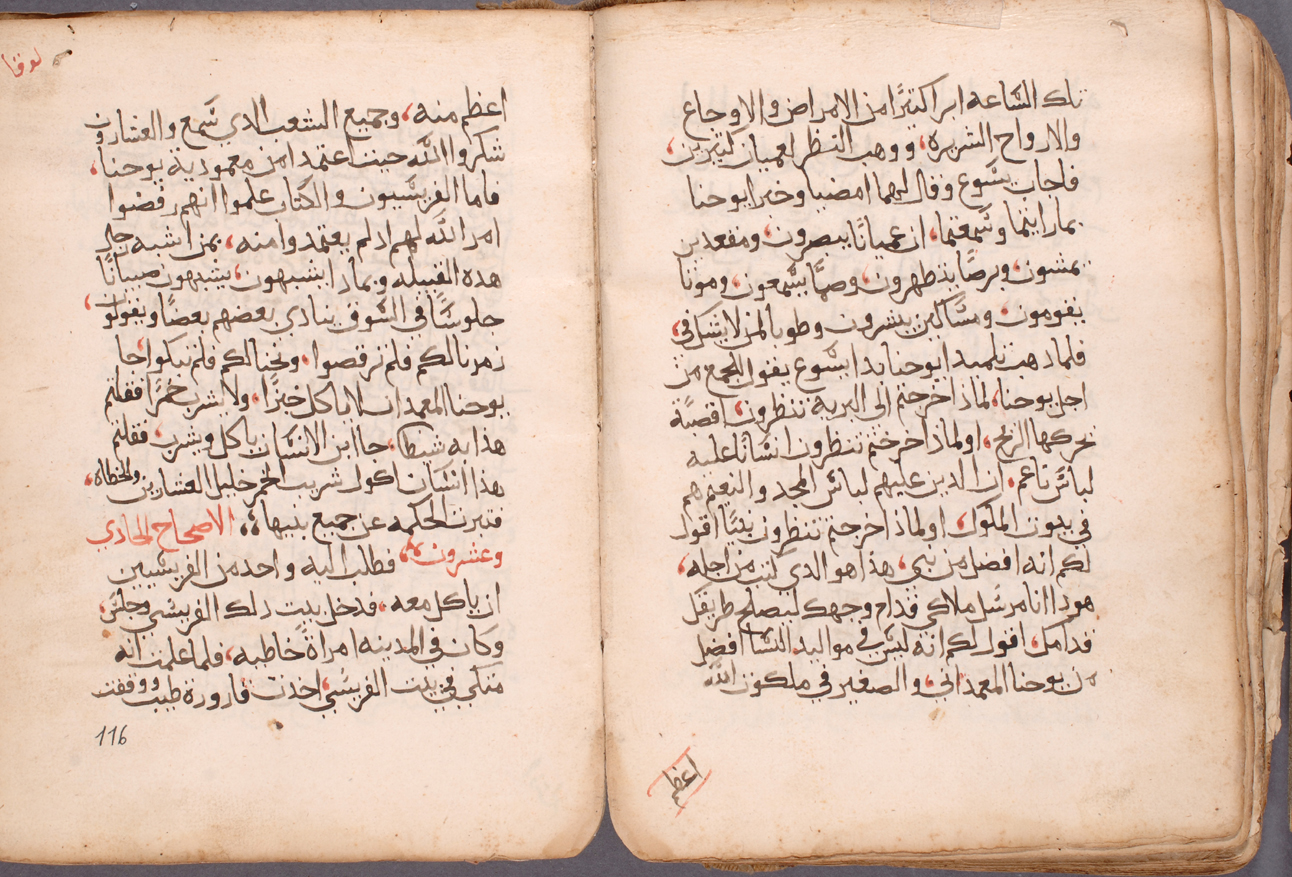 تلك الساعه ابرا كتيرًا من الامراض والاوجاع
والارواح الشريره، ووهب النظر لعميان كتيرين،
فاجاب يسوع وقال لهما امضيا وخبرا يوحنا
بما رايتما وسمعتما، ان عميانًا يبصرون، ومقعدين
يمشون، وبرصًا يتطهرون، وصمًا يسمعون، وموتا
يقومون، ومساكين يبشرون، وطوبا لمن لا يشك في،
فلما دهبت تلميدا يوحنا بدا يسوع يقول للجمع من
اجل يوحنا، لمادا خرجتم الى البريه تنظرون، اقصبة
تحركها الريح، او لمادا خرجتم تنظرون انسانًا عليه
لباس ناعم، ان الدين عليهم لباس المجد والتنعم هم
في بيوت الملوك، او لمادا خرجتم تنظرون نبيًا اقول
لكم انه افضل من نبي، هذا هو الدي كتب من اجله،
هودا انا مرسل ملاكي قدام وجهك ليصلح طريقك
قدامك، اقول لكم انه ليس في مواليد النسا افضل
من يوحنا المعمداني، والصغير في ملكوت الله
اعظم
لوقا
اعظم منه، وجميع الشعب الدي سمع والعشارون
شكروا الله حيت اعتمدا من معمودية يوحنا،
فاما الفريسيون والكتاب علموا انهم رفضوا
امر الله لهم اد لم يعتمدوا منه، بمن اشبه رجال
هده القبيله وبمادا يشبهون، يشبهون صبيانًا
جلوسًا في السوق ينادي بعضهم بعضًا ويقولون،
زمرنا لكم فلم ترقصوا، ونحنا لكم فلم تبكوا، جا
يوحنا المعمدان لا ياكل خبزًا، ولا يشرب خمرًا فقلتم
هذا به شيطان، جا ابن الانسان ياكل ويشرب، فقلتم
هذا انسان اكول شريب الخمر خليل العشارين والخطاه،
فتبررت الحكمه عن جميع بنيها، الاصحاح الحادي
وعشرون، فطلب اليه واحد من الفريسيين
ان ياكل معه، فدخل بيت دلك الفريسي وجلس،
وكان في المدينه امراة خاطيه، فلما علمت انه
متكي في بيت الفريسي، اخدت قارورة طيب ووقفت
116